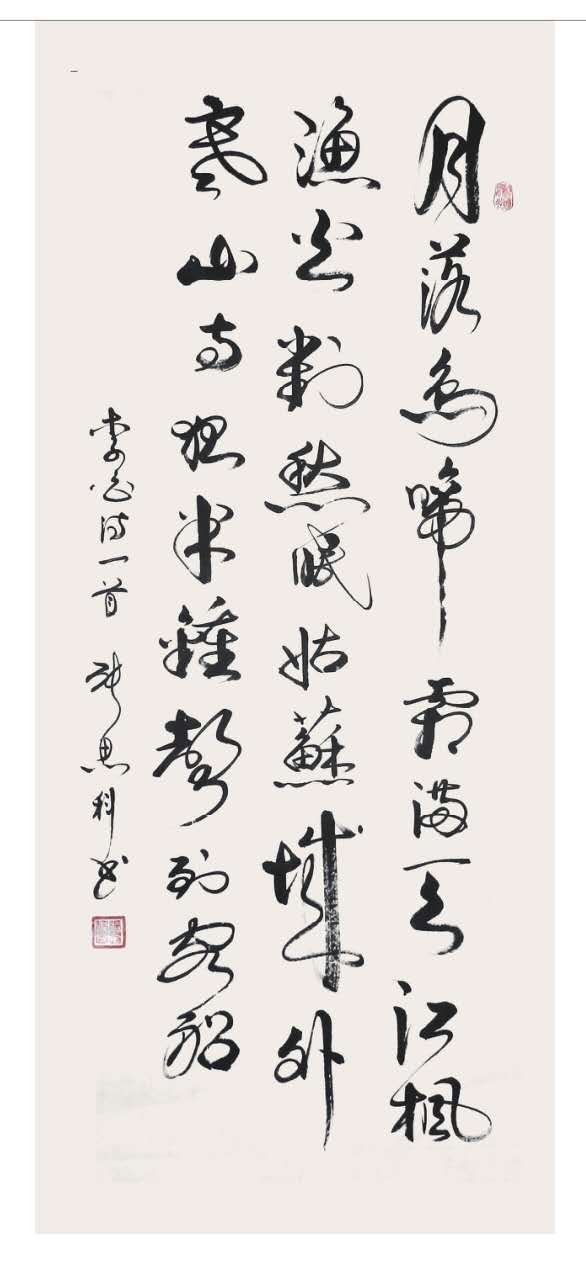 月落烏啼霜满天江楓
渔火對愁眠姑蘇城外
寒山寺夜半鐘聲到客船
李白诗一首 张思科书